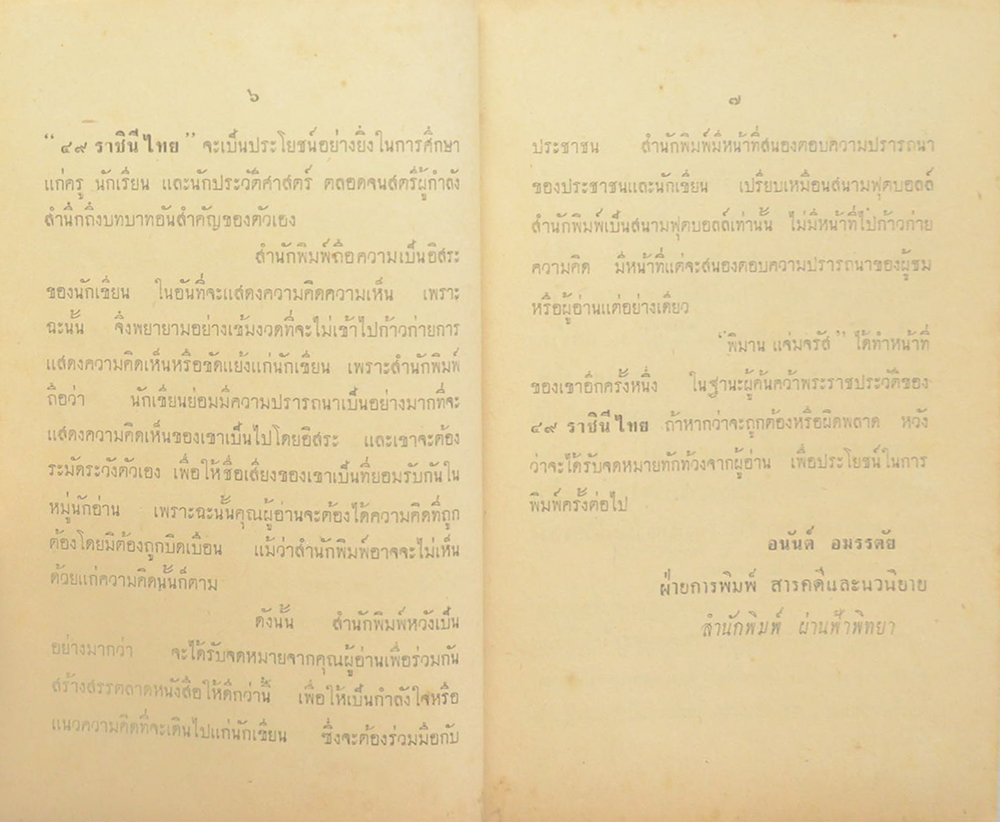 ๖
“๔๙ ราชินีไทย” จะเป็นประโยชน์อย่างยิ่งในการศึกษา
แก่ครู นักเรียน และนักประวัติศาสตร์ ตลอดจนสตรีผู้กำลัง
สำนึกถึงบทบาทอันสำคัญของตัวเอง
สำนักพิมพ์ถือความเป็นอิสระ
ของนักเขียน ในอันที่จะแสดงความคิดความเห็น เพราะ
ฉะนั้น จึงพยายามอย่างเข้มงวดที่จะไม่เข้าไปก้าวก่ายการ
แสดงความคิดเห็นหรือขัดแย้งแก่นักเขียน เพราะสำนักพิมพ์
ถือว่า นักเขียนย่อมมีความปรารถนาเป็นอย่างมากที่จะ
แสดงความคิดเห็นของเขาเป็นไปโดยอิสระ และเขาจะต้อง
ระมัดระวังตัวเอง เพื่อให้ชื่อเสียงของเขาเป็นที่ยอมรับกันใน
หมู่นักอ่าน เพราะฉะนั้นคุณผู้อ่านจะต้องได้ความคิดที่ถูก
ต้องโดยมิต้องถูกบิดเบือน แม้ว่าสำนักพิมพ์อาจจะไม่เห็น
ด้วยแก่ความคิดนั้นก็ตาม
ดังนั้น สำนักพิมพ์หวังเป็น
อย่างมากว่า จะได้รับจดหมายจากคุณผู้อ่านเพื่อร่วมกัน
สร้างสรรตลาดหนังสือให้ดีกว่านี้ เพื่อให้เป็นกำลังใจหรือ
แนวความคิดที่จะเดินไปแก่นักเขียน ซึ่งจะต้องร่วมมือกับ
๗
ประชาชน สำนักพิมพ์มีหน้าที่สนองตอบความปรารถนา
ของประชาชนและนักเขียน เปรียบเหมือนสนามฟุตบอลล์
สำนักพิมพ์เป็นสนามฟุตบอลล์เท่านั้น ไม่มีหน้าที่ไปก้าวก่าย
ความคิด มีหน้าที่แต่จะสนองตอบความปรารถนาของผู้ชม
หรือผู้อ่านแต่อย่างเดียว
“พิมาน แจ่มจรัส” ได้ทำหน้าที่
ของเขาอีกครั้งหนึ่ง ในฐานะผู้ค้นคว้าพระราชประวัติของ
๔๙ ราชินีไทย ถ้าหากว่าจะถูกต้องหรือผิดพลาด หวัง
ว่าจะได้รับจดหมายทักท้วงจากผู้อ่าน เพื่อประโยชน์ในการ
พิมพ์ครั้งต่อไป
อนันต์ อมรรตัย
ฝ่ายการพิมพ์ สารคดีและนวนิยาย
สำนักพิมพ์ ผ่านฟ้าพิทยา